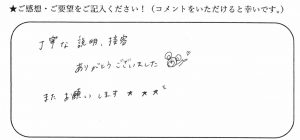 ★ご感想・ご要望をご記入ください！（コメントをいただけると幸いです。）
丁寧な説明、接客
ありがとうございました
またお願いします★★★